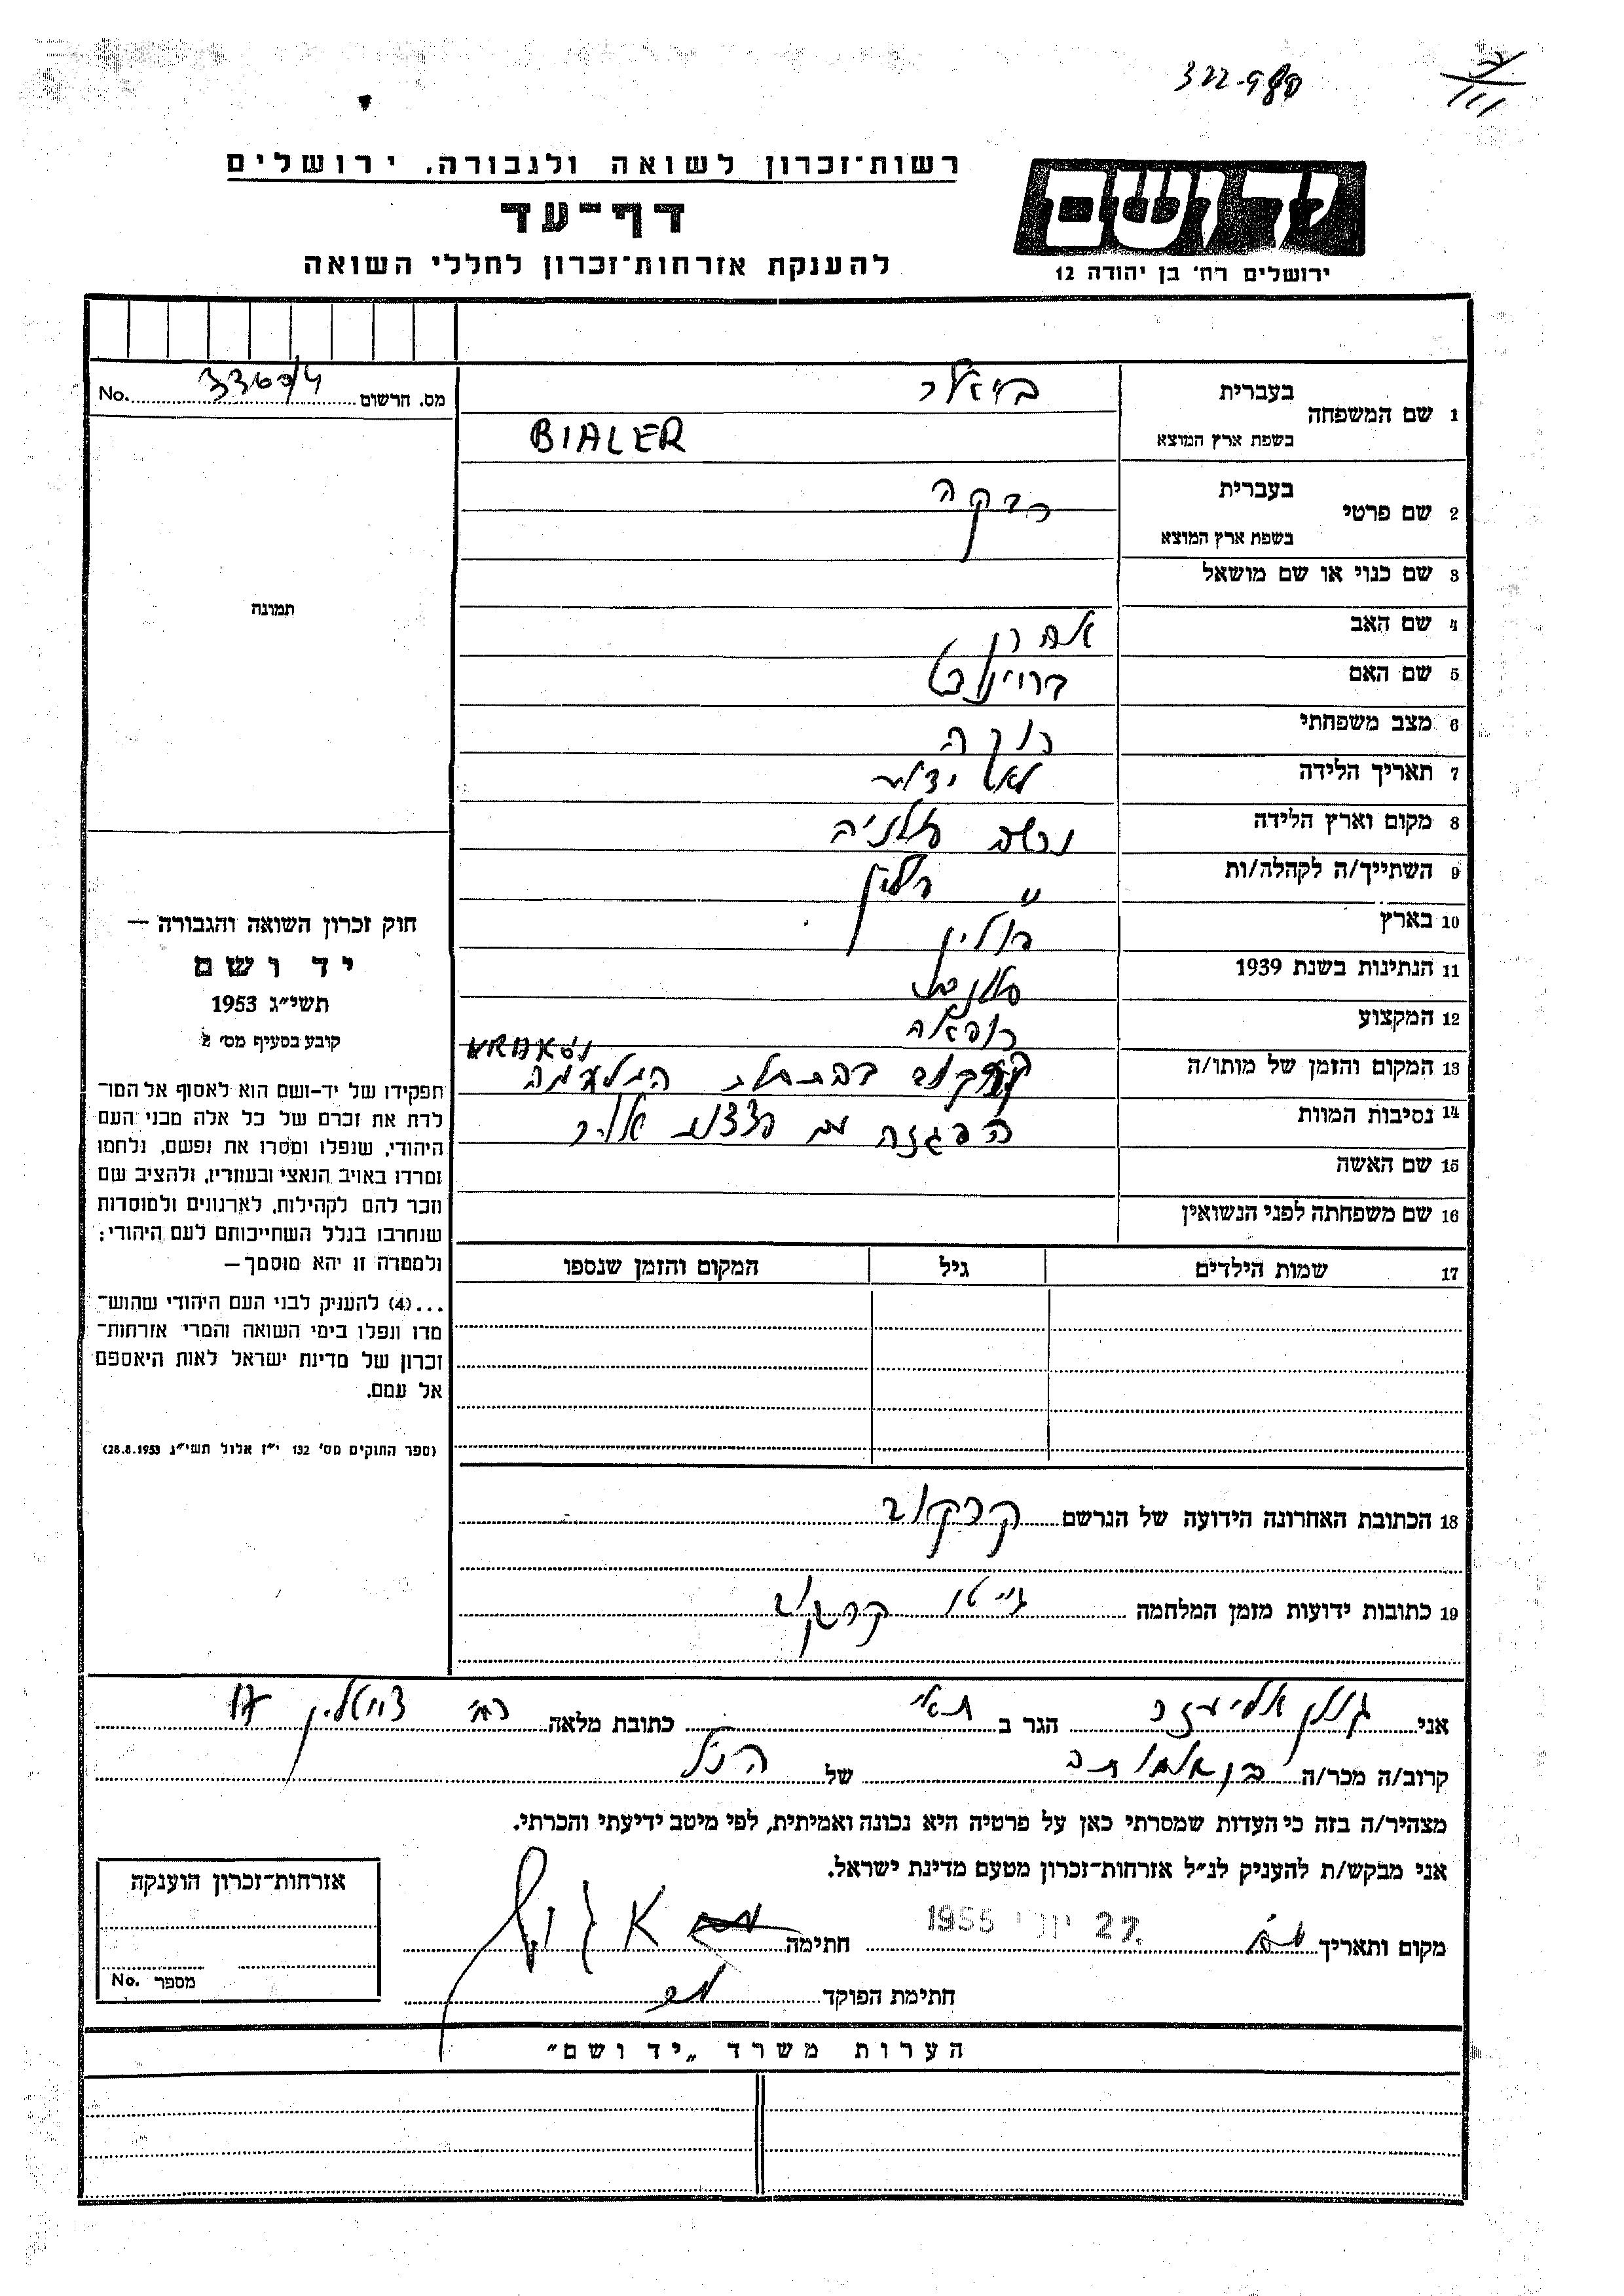 322-980
רשות־זכרון לשואה ולגבורה, ירושלים
דף־עד
להענקת אזרחות־זכרון לחללי השואה
יד ושם
ירושלים רח' בן יהודה 12
מס. הרשום 33604 No.
תמונה
חוק זכרון השואה והגבורה —
יד ושם
תשי״ג 1953
קובע בסעיף מס׳ 2
תפקידו של יד-ושם הוא לאסוף אל המו־
לדת את זכרם של כל אלה מבני העם
היהודי, שנפלו ומסרו את נפשם, נלחמו
ומרדו באויב הנאצי ובעוזריו, ולהציב שם
וזכר להם לקהילות, לארגונים ולמוסדות
שנחרבו בגלל השתייכותם לעם היהודי;
ולמטרה זו יהא מוסמך —
...(4) להעניק לבני העם היהודי שהוש־
מדו ונפלו בימי השואה והמרי אזרחות־
זכרון של מדינת ישראל לאות היאספם
אל עמם.
(ספר החוקים מס׳ 132 י״ז אלול תשי״ג 28.8.1953)
1 שם המשפחה בעברית ביאלר
בשפת ארץ המוצא BIALER
2 שם פרטי בעברית רבקה
בשפת ארץ המוצא
3 שם כנוי או שם מושאל
4 שם האב אהרן
5 שם האם
6 מצב משפחתי רוקה
7 תאריך הלידה לא ידוע
8 מקום וארץ הלידה
9 השתייך/ה לקהלה/ות " פולין
10 בארץ פולין
11 הנתינות בשנת 1939 פולנית
12 המקצוע רופאה
13 המקום והזמן של מותו/ה קרקוב בהתחלת המלחמה KRAKÓW
14 נסיבות המוות הפגזה עם פצצות אויר
15 שם האשה
16 שם משפחתה לפני הנשואין
17 שמות הילדים גיל המקום והזמן שנספו
18 הכתובת האחרונה הידועה של הנרשם קרקוב
19 כתובות ידועות מזמן המלחמה גיטו קרקוב
אני גולן אליעזר הגר ב ת״א כתובת מלאה רח׳ 17
קרוב/ה מכר/ה בן אחותה של הנ״ל
מצהיר/ה בזה כי העדות שמסרתי כאן על פרטיה היא נכונה ואמיתית, לפי מיטב ידיעתי והכרתי.
אני מבקש/ת להעניק לנ״ל אזרחות־זכרון מטעם מדינת ישראל.
מקום ותאריך 27. יוני 1955 חתימה
חתימת הפוקד
אזרחות־זכרון הוענקה
מספר No.
הערות משרד „יד ושם״